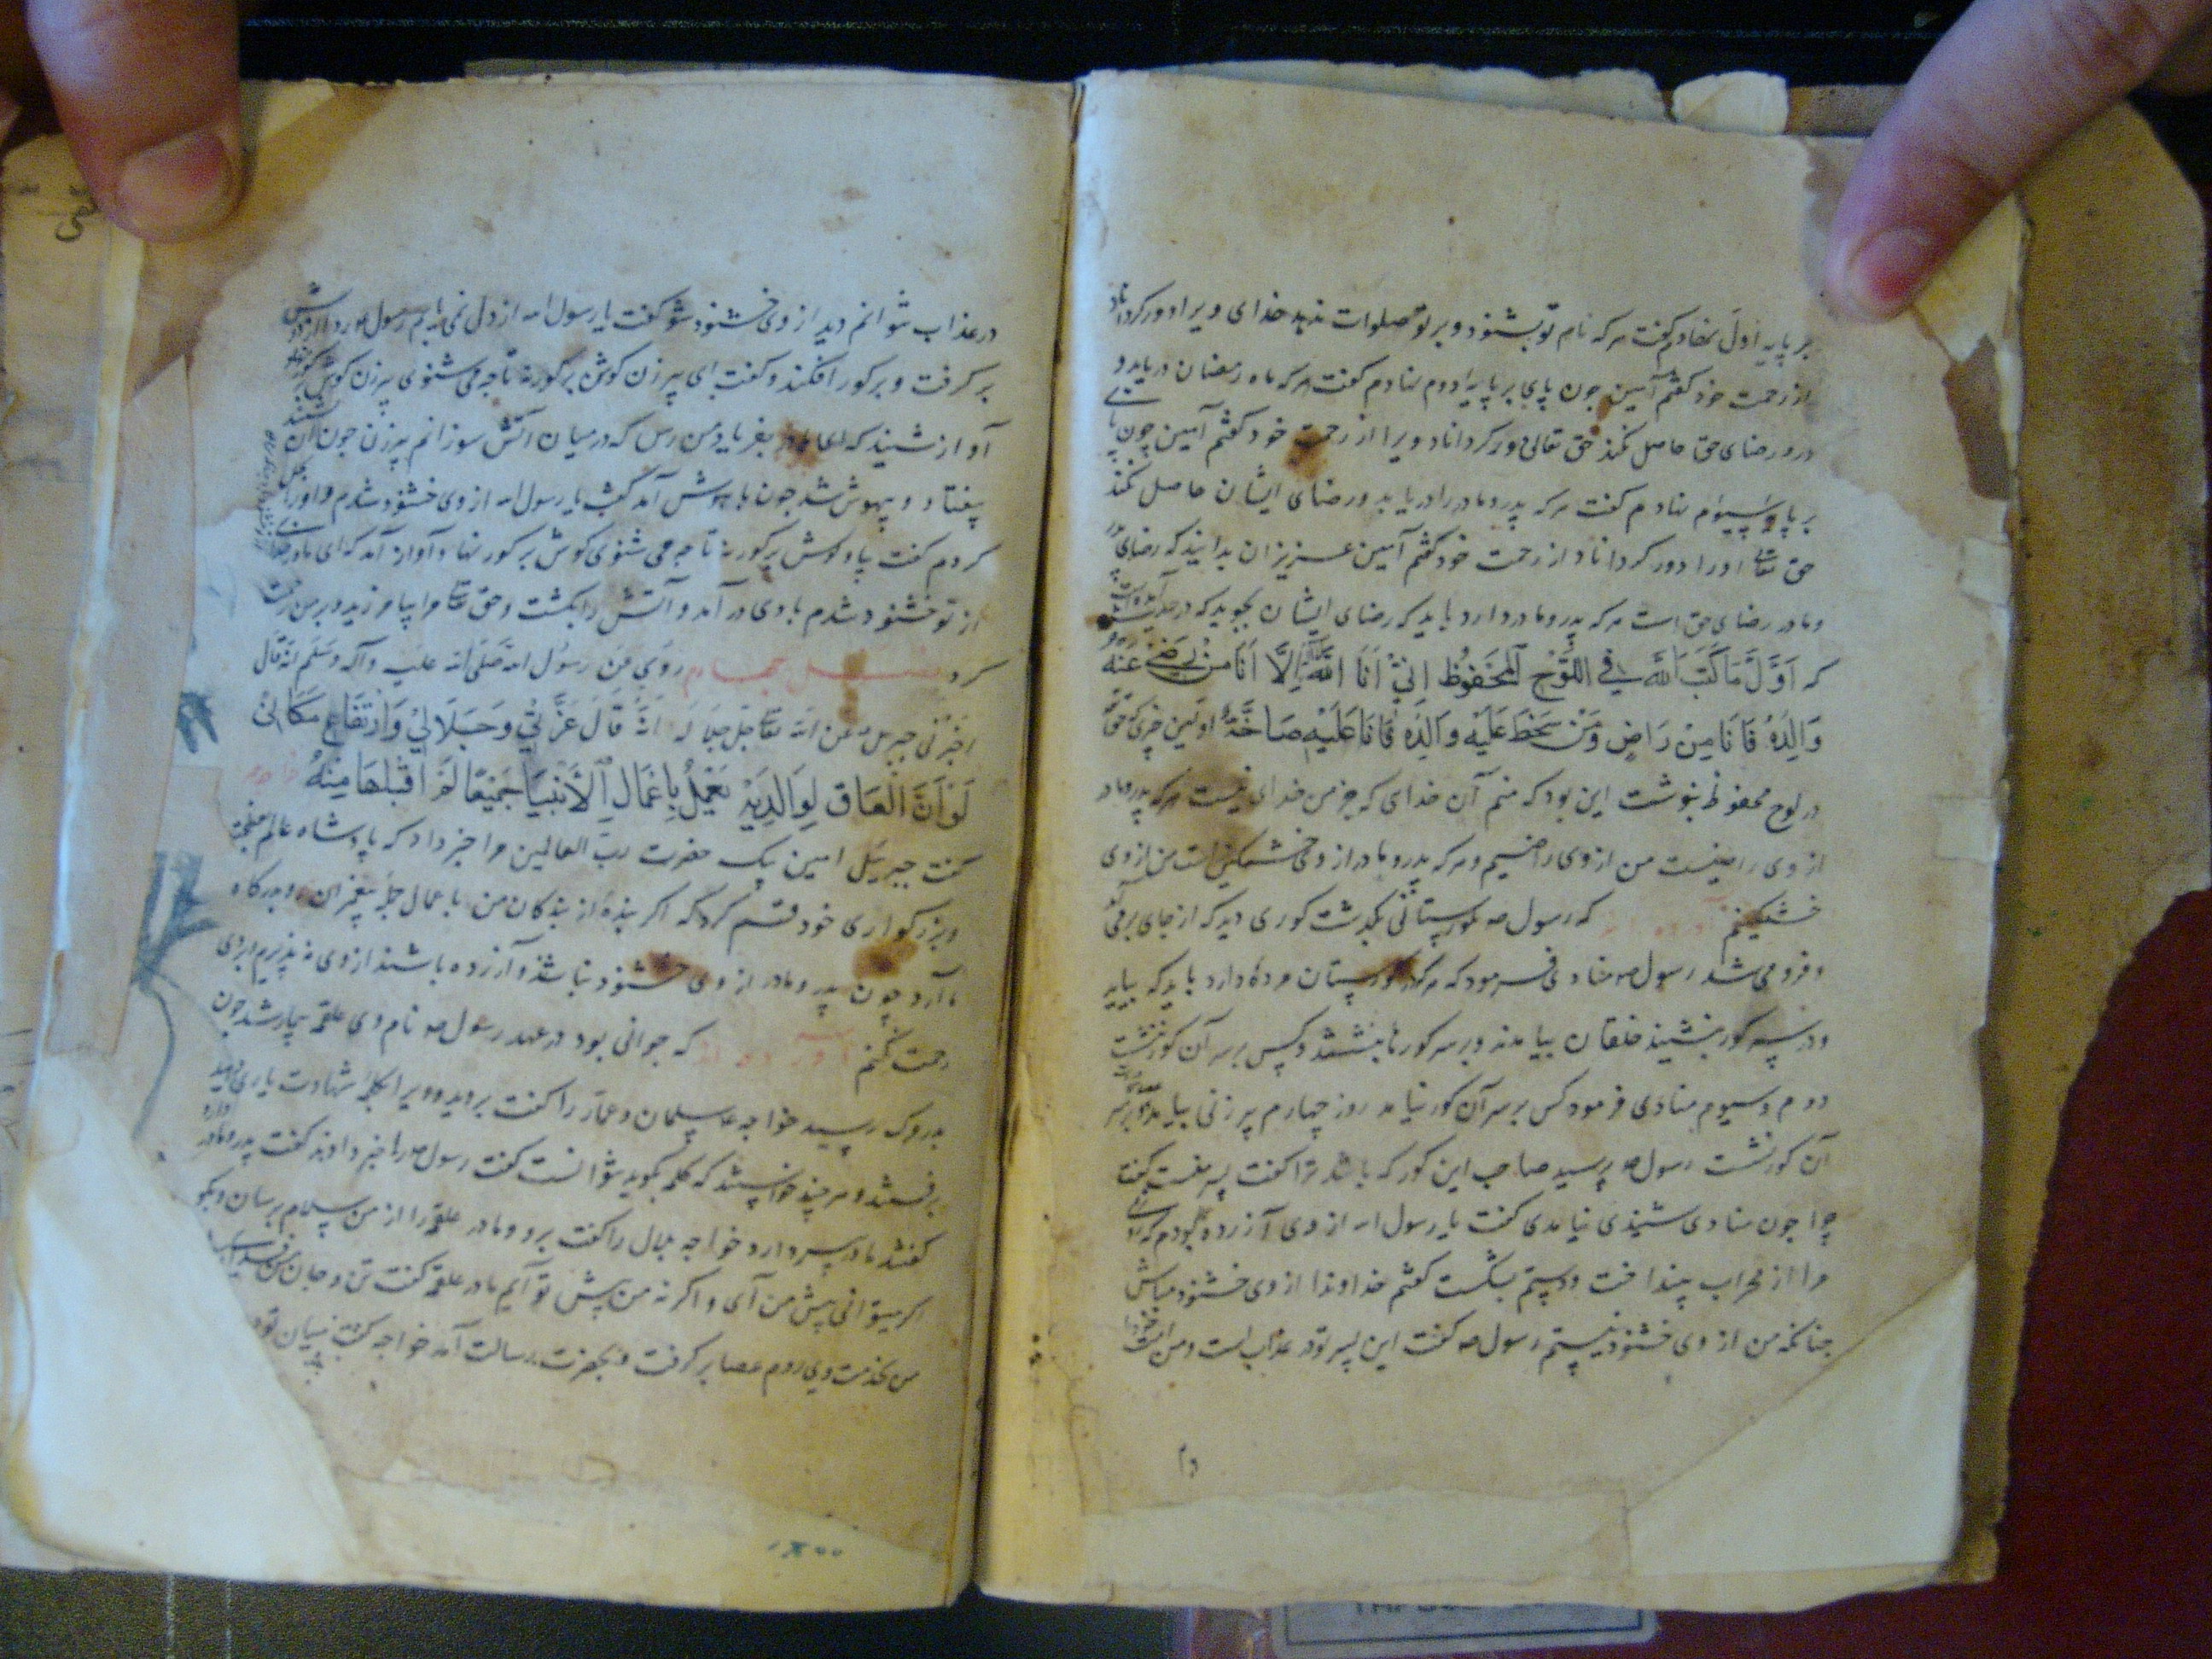 بر پایه اول نهادم گفت هر که نام تو بشنود و بر تو صلوات ندهد خدای ویرا دور کرداناد
از رحمت خود گفتم آمین جون پای بر پایه دوم نهادم گفت هر که ماه رمضان دریابد و
درو رضای حق حاصل نکند حق تعالی دور کرداناد ویرا از رحمت خود گفتم آمین چون پای
بر پایه سیوم نهادم گفت هر که پدر و مادر را دریابد و رضای ایشان حاصل نکند
حق تعالی اورا دور کرداناد از رحمت خود گفتم آمین عزیزان بدانید که رضای پدر
و مادر رضای حق است هر که پدر و مادر دارد باید که رضای ایشان بجوید که در حدیث آمده است
که اَوَّلَ مَا كَتَبَ اللهُ فِي اللَّوْحِ الْمَحْفُوظِ اِنّي اَنَا اللهُ لا اِلٰهَ اِلَّا اَنَا مَنْ رَضِيَ عَنْهُ
وَالِدَهُ فَاَنَا مِنْهُ رَاضٍ وَمَنْ سَخِطَ عَلَيْهِ وَالِدَهُ فَاَنَا عَلَيْهِ سَاخِطٌ اولین چیزی که حق
در لوح محفوظ بنوشت این بود که منم آن خدای که جز من خدای نیست هر که پدر و مادر
از وی راضیست من از وی راضیم و هر که پدر و مادر از وی خشمکین است من از وی
خشمکینم که رسول ص بکورستانی بکذشت کوری دید که از جای بر می آمد
و فرو می شد رسول ص منادی فرمود که هر که در کورستان مرده دارد باید که بیاید
و در سر کور بنشیند خلقان بیامدند و بر سر کورها بنشستند و کس بر سر آن کور ننشست
دوم و سیوم منادی فرمود کس بر سر آن کور نیامد روز چهارم پیر زنی بیامد و بر سر
آن کور نشست رسول ص پرسید صاحب این کور که باشد ترا گفت پسر منست گفت
چرا جون منادی شنیدی نیامدی گفت یا رسول الله از وی آزرده بودم که
مرا از محراب بینداخت و دستم بشکست گفتم خداوندا از وی خشنود مباش
جنانکه من از وی خشنود نیستم رسول ص گفت این پسر تو در عذاب است و من
در عذاب نتوانم دید از وی خشنود شو گفت یا رسول الله از دل نمی یابم رسول ص ردا از دوش
بر کرفت و بر کور افکند و گفت ای پیر زن کوش بر کور نه تا چه می شنوی پیر زن کوش بر کور نهاد
آواز شنید که ای مادر بفریاد من رس که در میان آتش سوزانم پیر زن جون آن بشنید
بیفتاد و بیهوش شد جون باهوش آمد گفت یا رسول الله از وی خشنود شدم و او را
کردم گفت بیا و کوش بر کور نه تا چه می شنوی کوش بر کور نهاد آواز آمد که ای مادر
از تو خشنود شدم بادی در آمد و آتش را بکشت و حق تعالی مرا بیامرزید و بر من رحمت
کرد روي من رسول الله صلی الله علیه وآله وسلم انه قال
اخبرنی جبرئیل عن الله تعالی جل جلاله انه قَالَ عِزَّتي وَجَلَالِي وَارْتِفَاعِ مَكَانِي
لَوْ اَنَّ الْعَاقَ لِوَالِدَيْهِ يَعْمَلُ بِاَعْمَالِ الْاَنْبِيَاءِ جَمِيعًا لَمْ اَقْبَلْهَا مِنْهُ
گفت جبرئیل امین پیک حضرت رب العالمین مرا خبر داد که پادشاه عالم
و بزرکواری خود قسم کرد که اکر بنده از بندکان من با عمال جمله پیغمبران و بدرکاه
ما آرد چون پدر و مادر از وی خشنود نباشند و آزرده باشند از وی نه پذیرم و بروی
رحمت نکنم که جوانی بود در عهد رسول ص نام وی علقمه بیمار شد جون
بدرو ک رسید خواجه ع سلمان و عمار را گفت بروید و ویرا کلمه شهادت یاری دهید
برفتند و هر چند خواستند که کلمه بکوید نتوانست گفت رسول ص را خبر دادند گفت پدر و مادر دارد
گفتند مادر پیر دارد خواجه بلال را گفت برو و مادر علقمه را از من سلام برسان و بکو
اکر میتوانی پیش من آی و اکر نه من پیش تو آیم مادر علقمه گفت تن و جان من فدای
من بخدمت وی روم عصا بر کرفت و بحضرت رسالت آمد خواجه گفت میان تو و